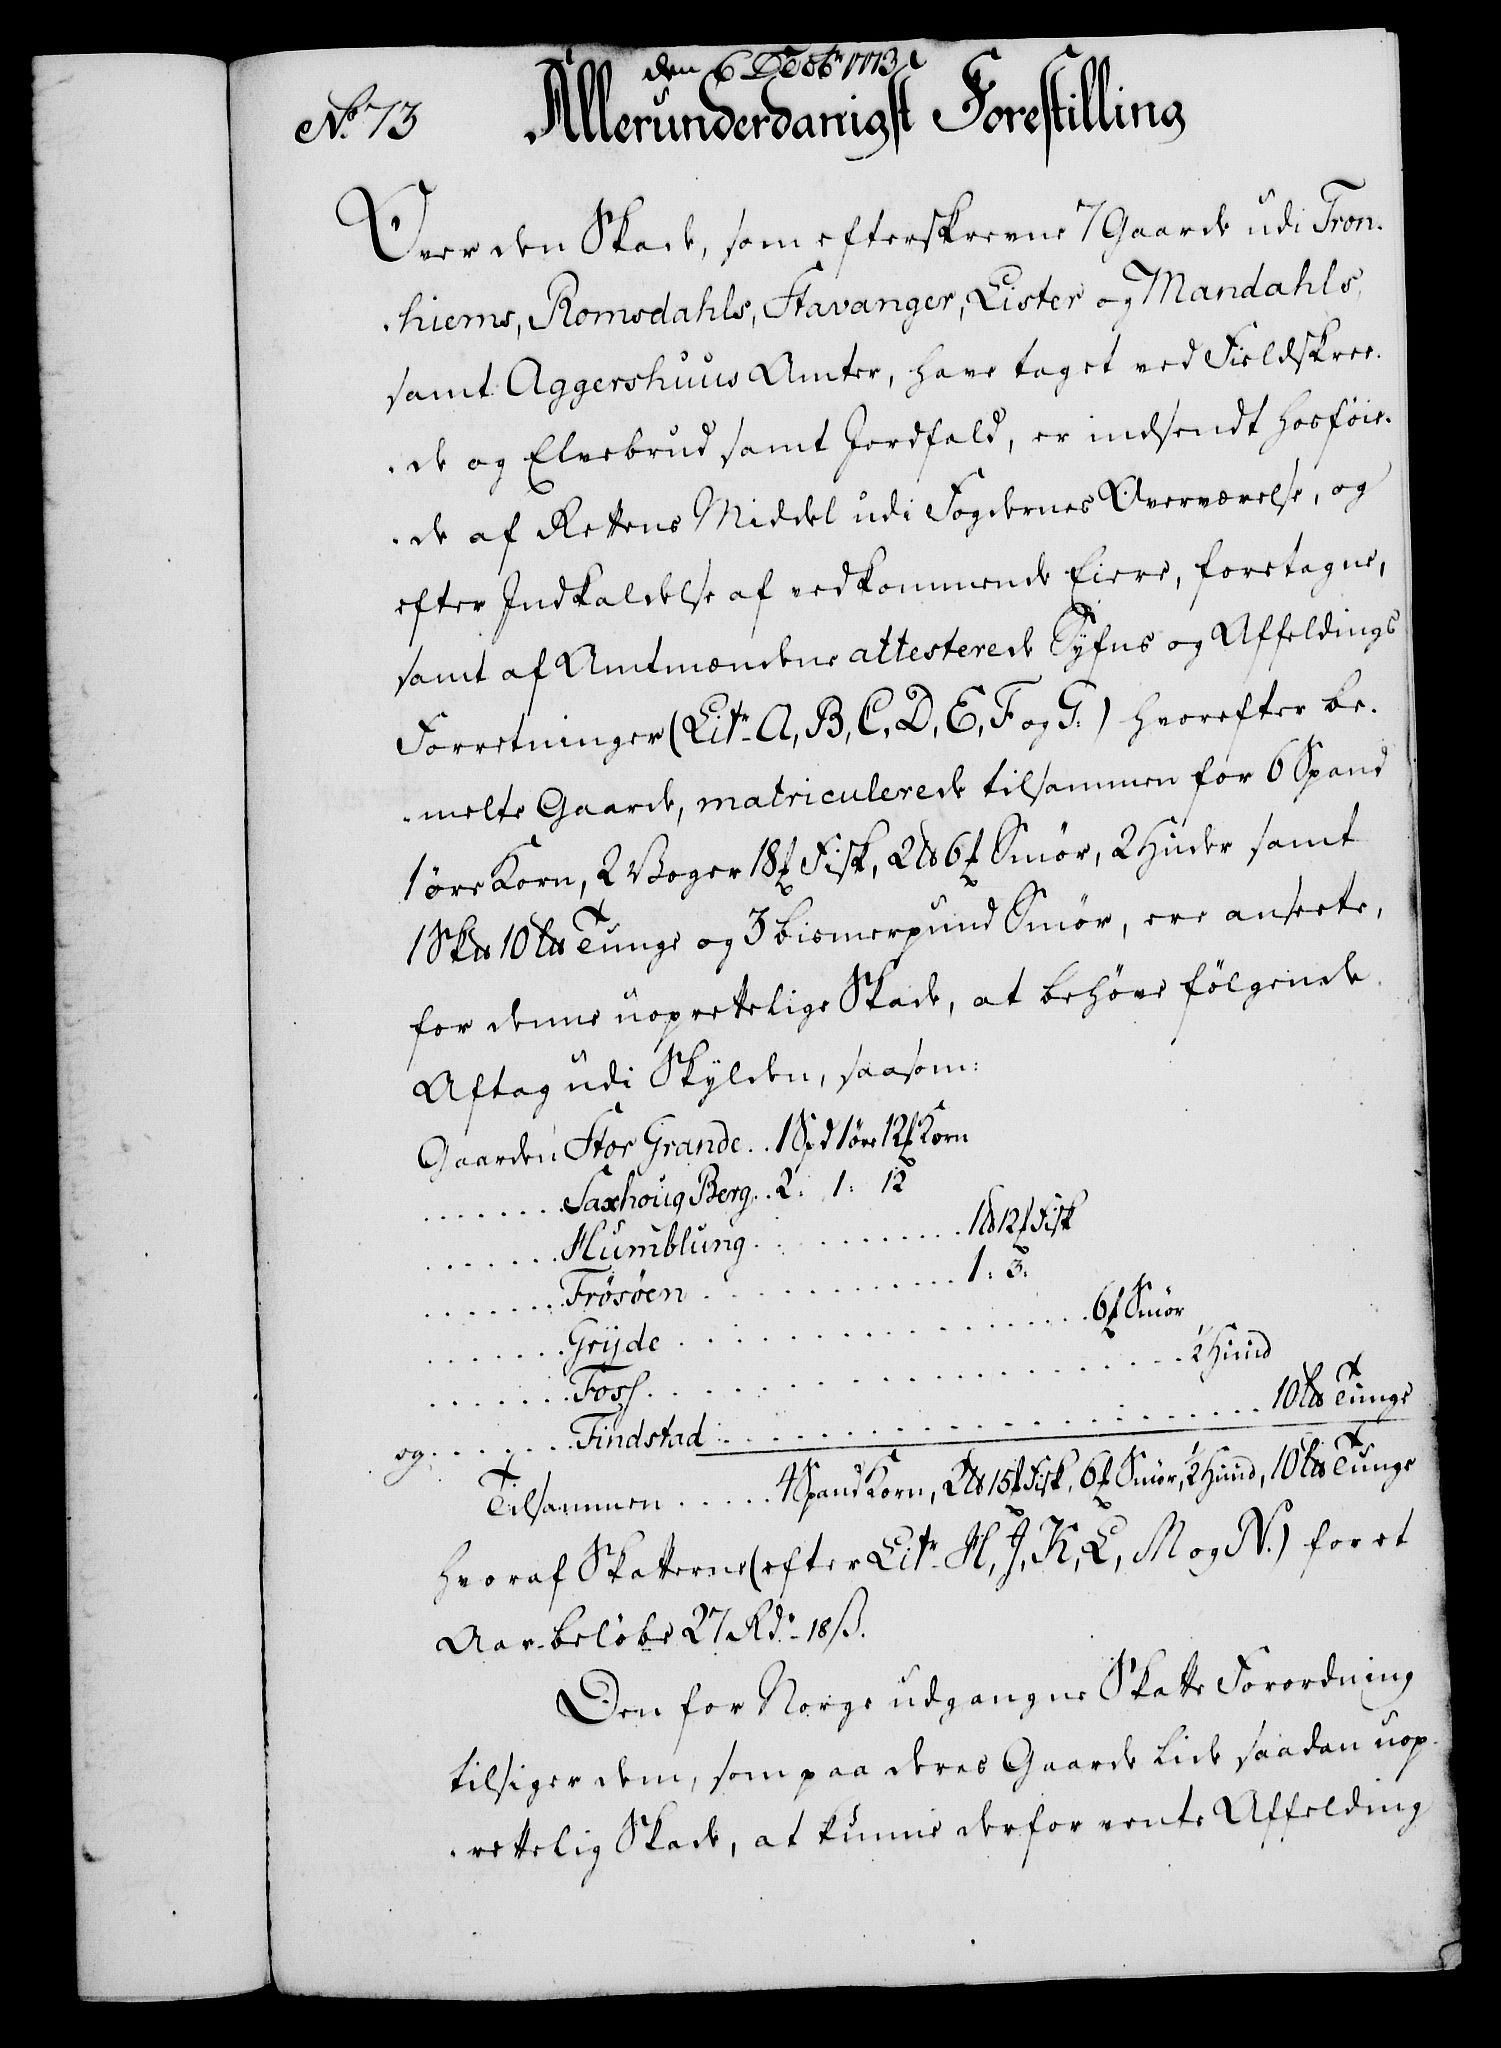 den 6 1773
No. 73
Allerunderdanigst Forestilling
Over den Skade, som efterskrevne 7 Gaarde udi Tron-
-hiems, Romsdahls, Stavanger, Lister og Mandahls,
samt Aggershuus Amter, have taget ved Fieldskree-
-de og Elvebrud samt Jordfald, er indsendt hosføie-
-de af Rettens Middel udi Fogdernes Overværelse, og
efter Indkaldelse af vedkommende Eiere, foretagne,
samt af Amtmændene attesterede Syfns og Affeldings
Forretninger (Litr. A, B, C, D, E, F og G.) hvorefter be-
-melte Gaarde, matriculerede tilsammen for 6 Spand
1 øre Korn, 2 Voger 18 Fisk, 2 6 Smør, 2 Huder samt
1 Sk 10 Tunge og 3 bismerpund Smør, ere anseete,
for denne uoprettelige Skade, at behøve følgende
Aftag udi Skylden, saasom:
Gaarden Stor Grande .. 1 Spd 1 øre 12 Korn
....... Saxhoug Berg .. 2: 1: 12
....... Humblung ............ 1 12 Fisk
....... Frøsøen ............... 1: 3:
....... Grijde .................... 6 Smør
....... Foss ........................ ½ Huud
og ....... Findstad ............................ 10 Tunge
Tilsammen ..... 4 Spand Korn, 2 15 Fisk, 6 Smør, ½ Huud, 10 Tunge
hvoraf Skatterne (efter Litr. H, J, K, L, M og N.) for et
Aar beløbe 27 Rdr. 18 ß.
Den for Norge udgangne Skatte Forordning
tilsiger dem, som paa deres Gaarde lide saadan uop-
-rettelig Skade, at kunne derfor vente Affelding